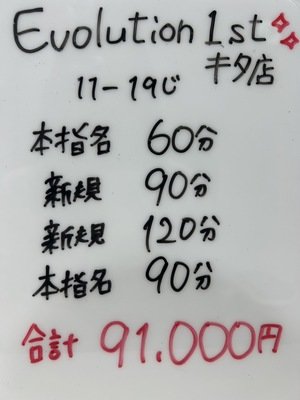 Evolution 1st
キタ店
11-19じ
本指名 60分
新規 90分
新規 120分
本指名 90分
合計 91.000円